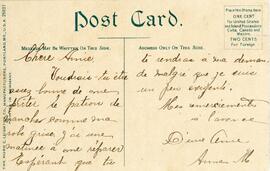 Post Card.
MESSAGE MAY BE WRITTEN ON THIS SIDE.
ADDRESS ONLY ON THIS SIDE.
Place Postage Stamp Here
ONE CENT
For United States
and Island Possessions
Cuba, Canada and
Mexico.
TWO CENTS
For Foreign
Chère Amie
Voudrais-tu être
assez bonne de me
prêter le patron de
manches comme ma
robe grise, j'ai une
à me réparer
Espérant que tu
te rendras à ma deman
de malgré que je suis
un peu exigente.
Mes remerciements
à l'avance.
D'une Amie
Anna M